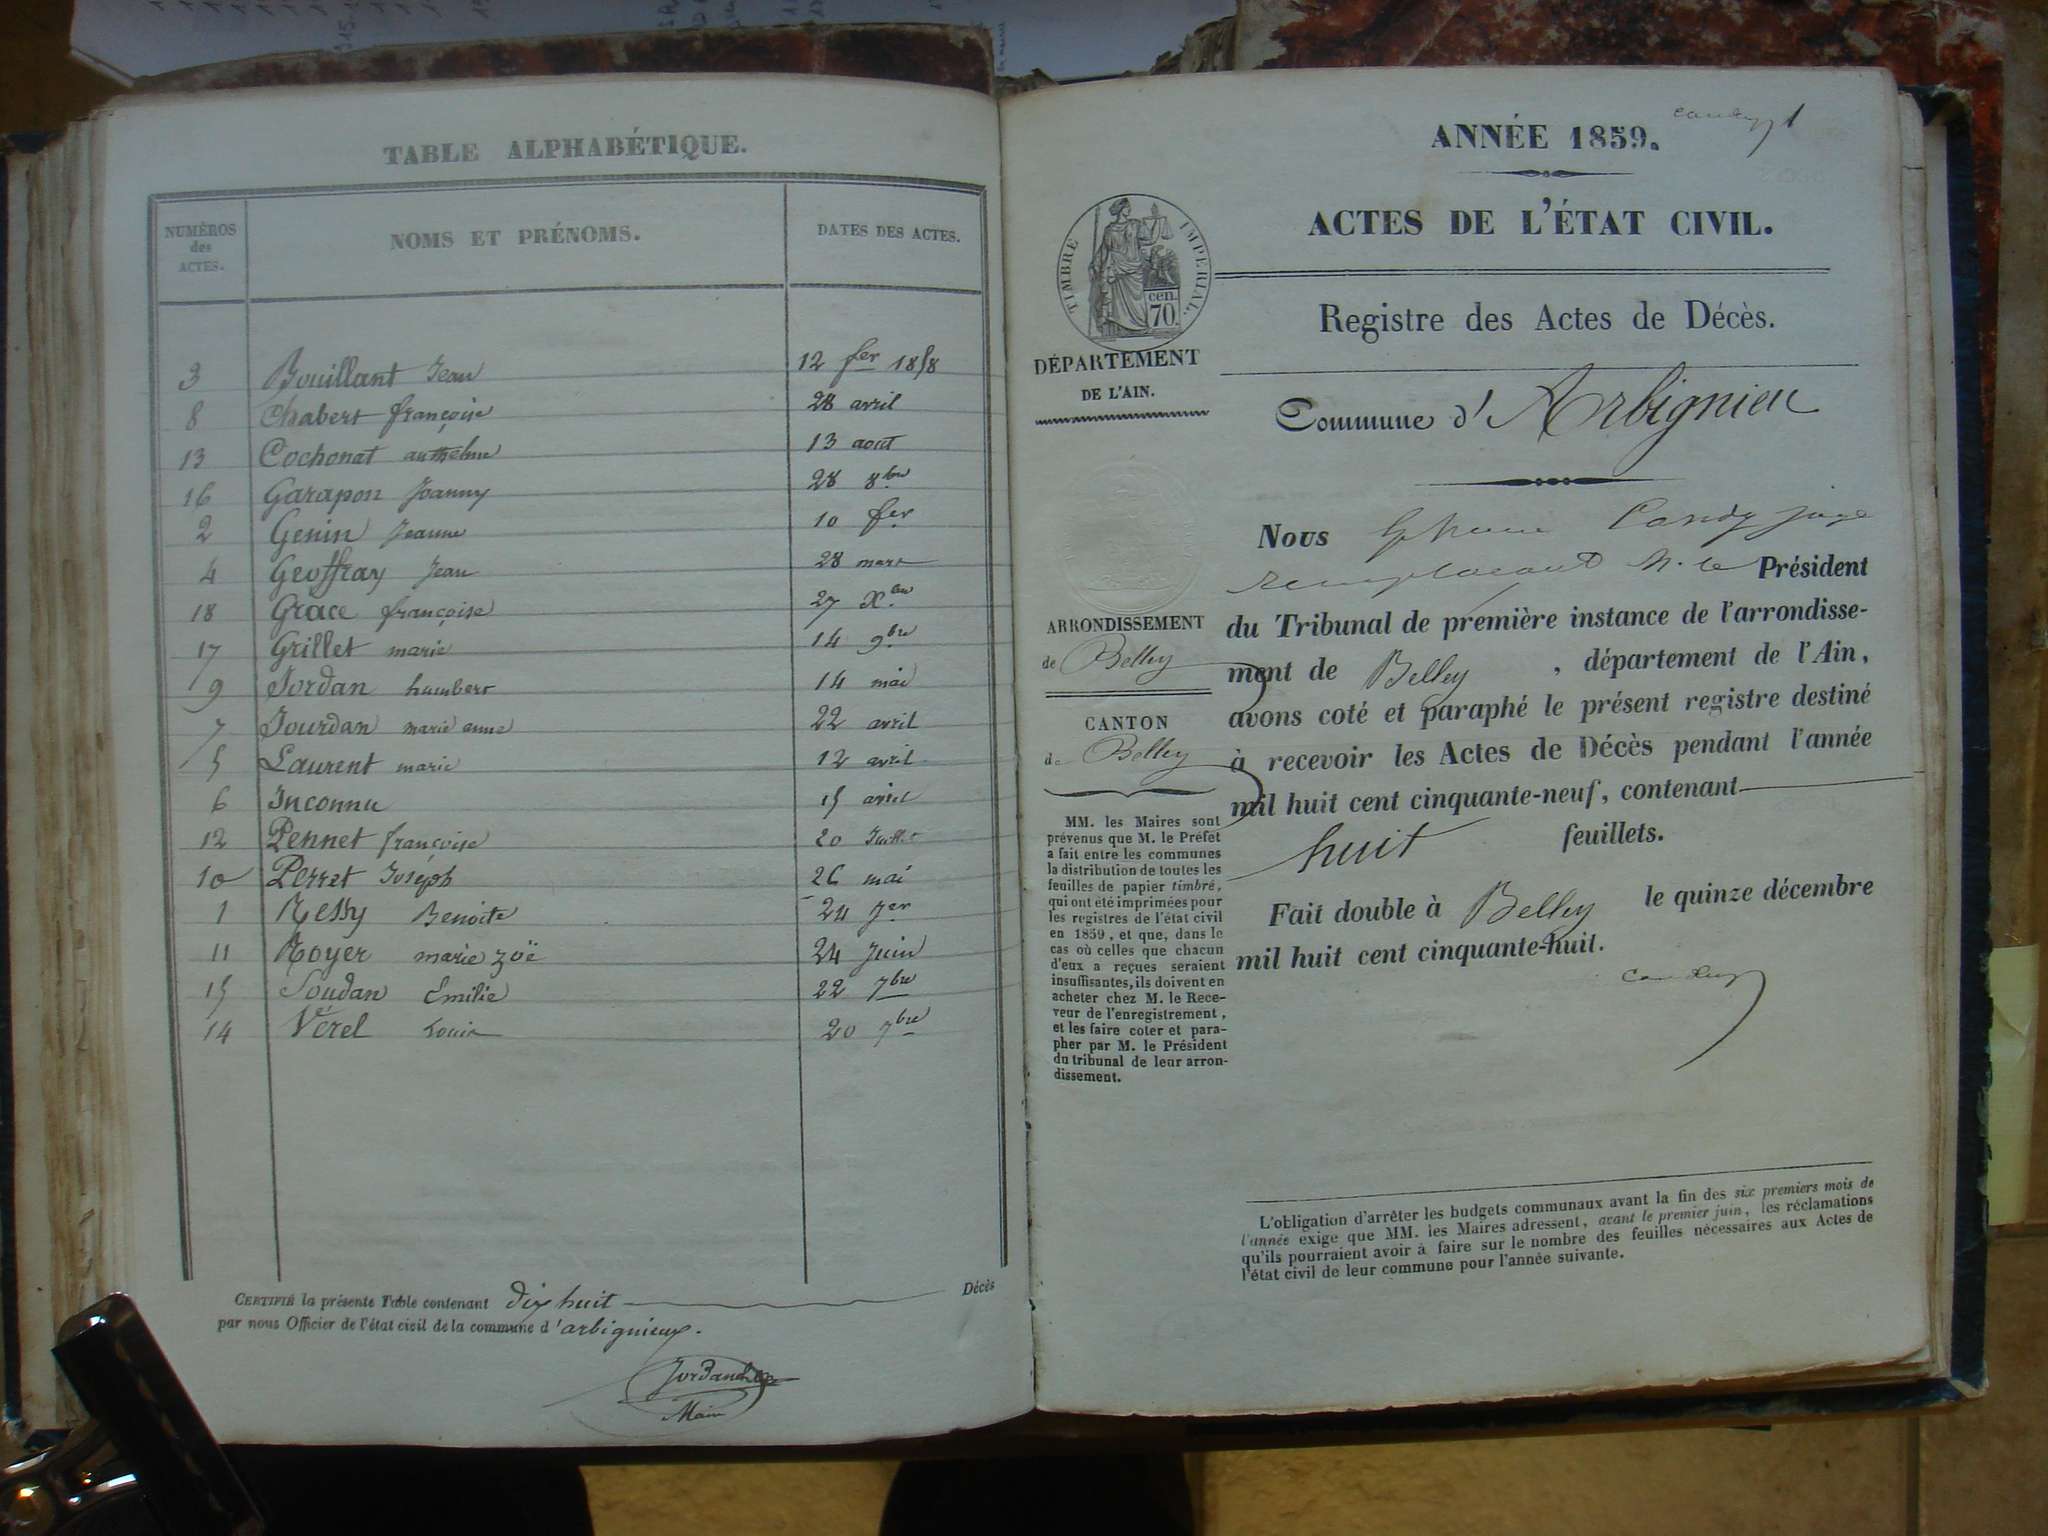 TABLE ALPHABÉTIQUE.
NUMÉROS des ACTES. NOMS ET PRÉNOMS. DATES DES ACTES.
3 Bouillant Jean 12 fer 1858
8 Chabert françoise 28 avril
13 Cochonat anthelme 13 aout
16 Garapon Joanny 28 8bre
2 Genin Jeanne 10 fer
4 Geoffray Jean 28 mars
18 Grace françoise 27 Xbre
17 Grillet marie 14 9bre
9 Jordan humbert 14 mai
7 Jourdan marie anne 22 avril
5 Laurent marie 12 avril
6 Inconnu 15 avril
12 Pennet françoise 20 Juillet
10 Perret Joseph 26 mai
1 Ressy Benoite 24 Jer
11 Royer marie zöe 24 Juin
15 Soudan Emilie 22 7bre
14 Vérel Louis 20 7bre
CERTIFIÉ la présente Table contenant dix huit Décès
par nous Officier de l'état civil de la commune d'arbignieux.
Maire
1
ANNÉE 1859.
ACTES DE L'ÉTAT CIVIL.
TIMBRE IMPÉRIAL.
cen.
70.
Registre des Actes de Décès.
DÉPARTEMENT
DE L'AIN.
Commune d'Arbignieu
ARRONDISSEMENT
de Belley
CANTON
de Belley
MM. les Maires sont
prévenus que M. le Préfet
a fait entre les communes
la distribution de toutes les
feuilles de papier timbré,
qui ont été imprimées pour
les registres de l'état civil
en 1859, et que, dans le
cas où celles que chacun
d'eux a reçues seraient
insuffisantes, ils doivent en
acheter chez M. le Rece-
veur de l'enregistrement,
et les faire coter et para-
pher par M. le Président
du tribunal de leur arron-
dissement.
Nous Candy juge
remplacant M. le Président
du Tribunal de première instance de l'arrondisse-
ment de Belley, département de l'Ain,
avons coté et paraphé le présent registre destiné
à recevoir les Actes de Décès pendant l'année
mil huit cent cinquante-neuf, contenant
huit feuillets.
Fait double à Belley le quinze décembre
mil huit cent cinquante-huit.
L'obligation d'arrêter les budgets communaux avant la fin des six premiers mois de
l'année exige que MM. les Maires adressent, avant le premier juin, les réclamations
qu'ils pourraient avoir à faire sur le nombre des feuilles nécessaires aux Actes de
l'état civil de leur commune pour l'année suivante.